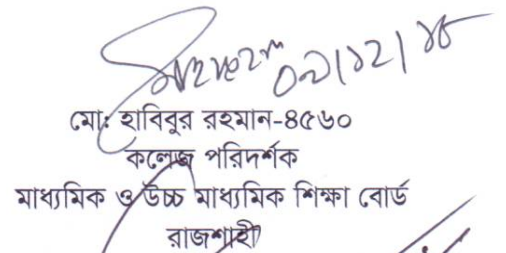 ০৯/১২/১৮
মো: হাবিবুর রহমান-৪৫৬০
কলেজ পরিদর্শক
মাধ্যমিক ও উচ্চ মাধ্যমিক শিক্ষা বোর্ড
রাজশাহী